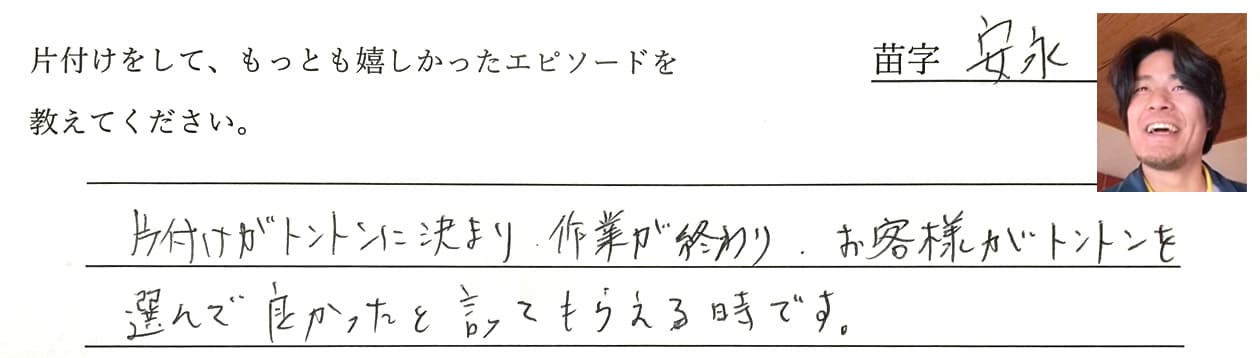 片付けをして、もっとも嬉しかったエピソードを
教えてください。
苗字 安永
片付けがトントンに決まり、作業が終わり、お客様がトントンを
選んで良かったと言ってもらえる時です。